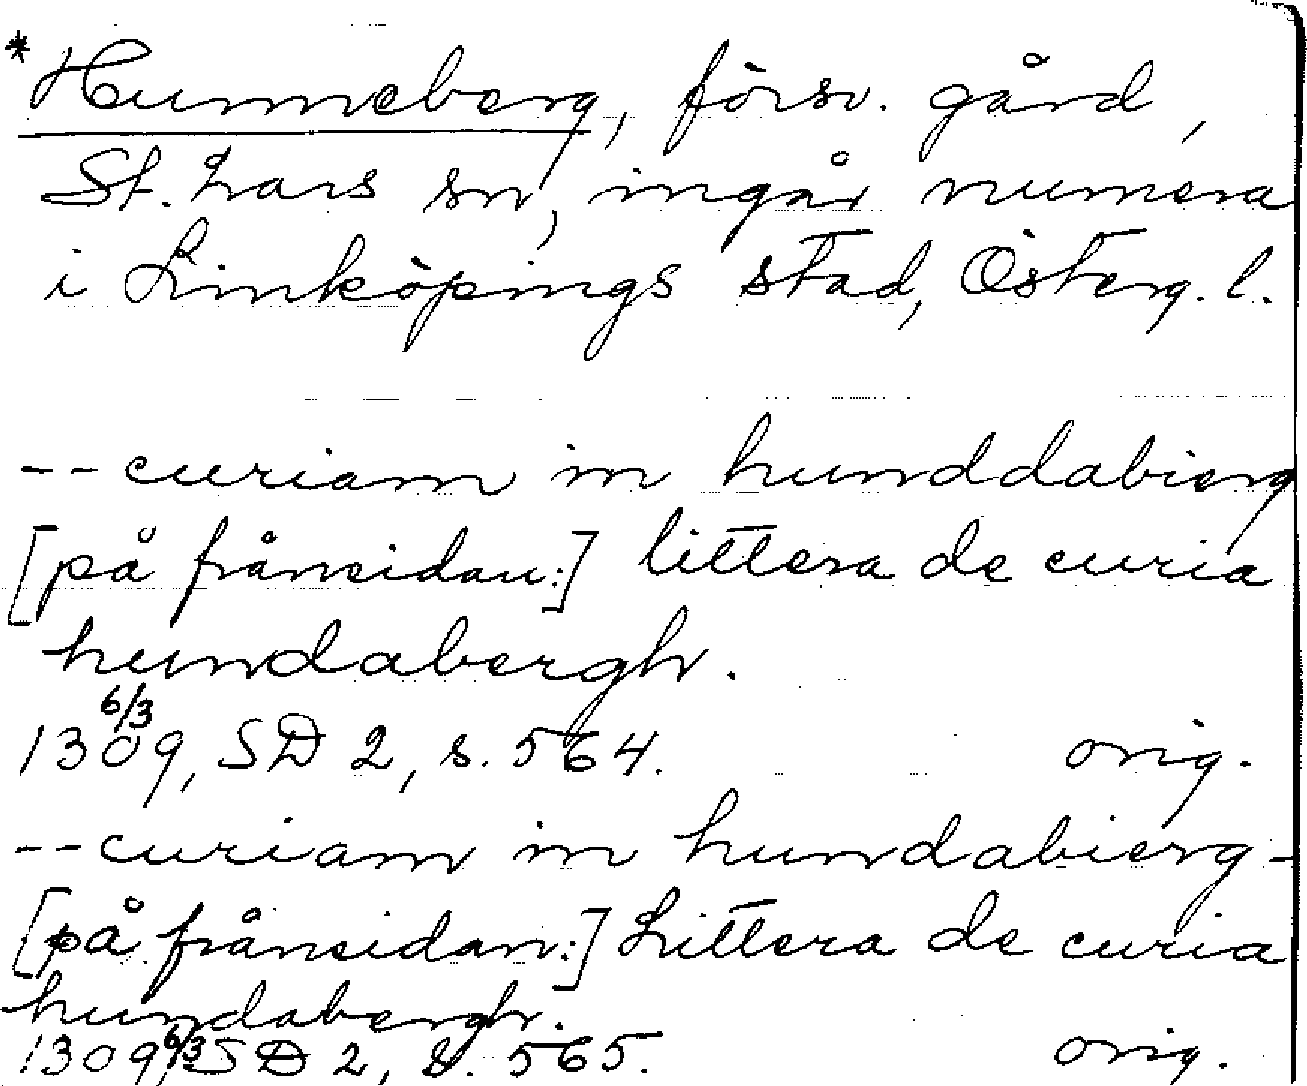 * Hunneberg, försv. gård,
St. Lars sn, ingår numera
i Linköpings stad, Österg. l.
-- curiam in hunddabierg
[på frånsidan:] littera de curia
hundabergh.
1309 6/3, SD 2, s. 564. orig.
-- curiam in hundabierg -
[på frånsidan:] Littera de curia
hundabergh.
1309 6/3 SD 2, s. 565. orig.